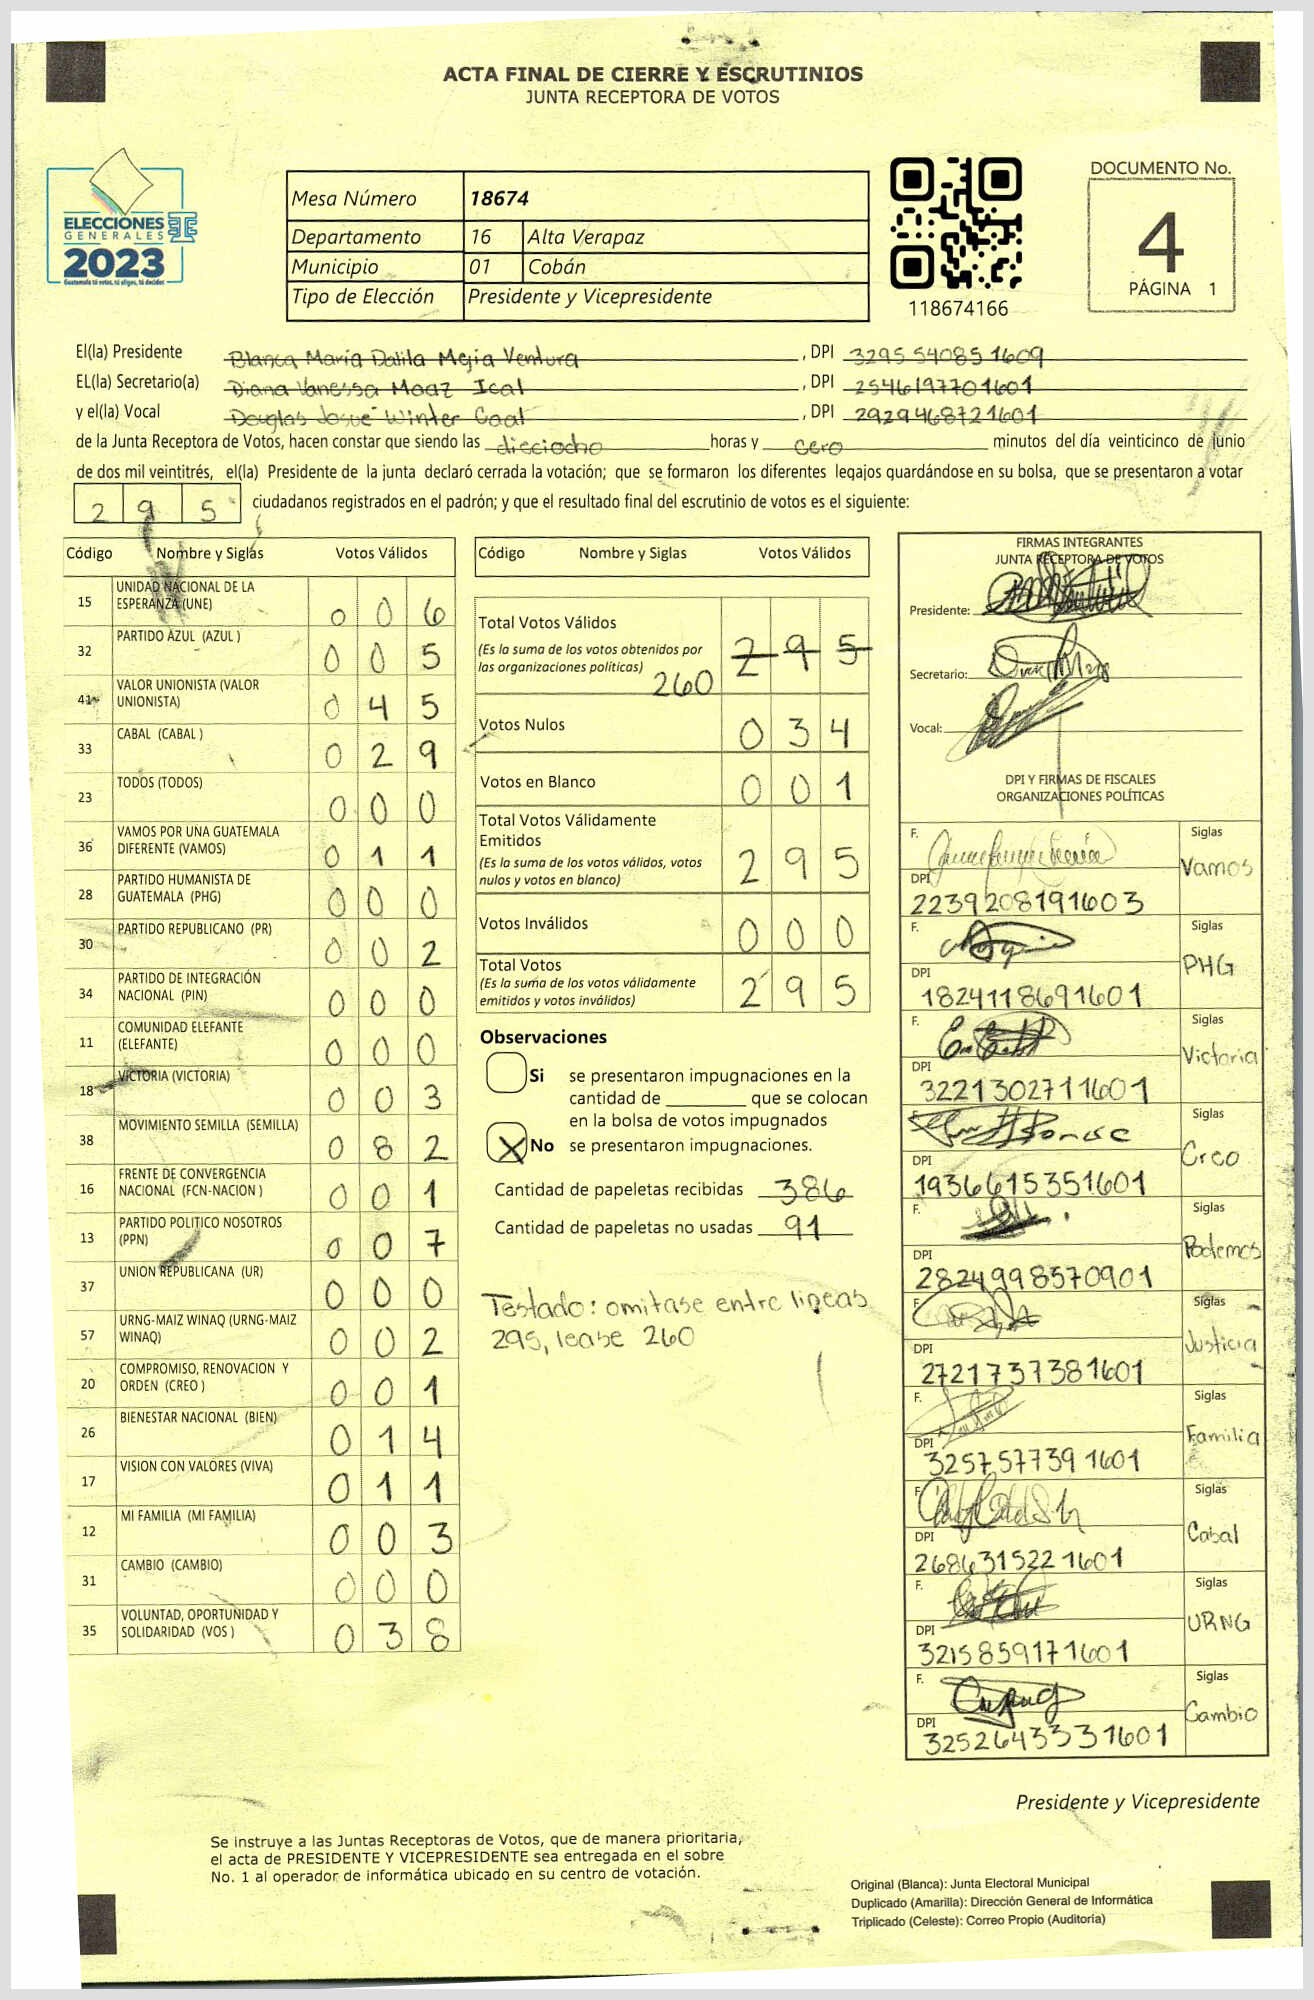 ACTA FINAL DE CIERRE Y ESCRUTINIOS
JUNTA RECEPTORA DE VOTOS
ELECCIONES
GENERALES
2023
Guatemala tú votas, tú eliges, tú decides
Mesa Número 18674
Departamento 16 Alta Verapaz
Municipio 01 Cobán
Tipo de Elección Presidente y Vicepresidente
118674166
DOCUMENTO No.
4
PÁGINA 1
El(la) Presidente Blanca María Dalila Mejia Ventura, DPI 3295 54085 1609
EL(la) Secretario(a) Diana Vanessa Maaz Ical, DPI 2546197701601
y el(la) Vocal Douglas Josué Winter Caal, DPI 2929468721601
de la Junta Receptora de Votos, hacen constar que siendo las dieciocho horas y cero minutos del día veinticinco de junio
de dos mil veintitrés, el(la) Presidente de la junta declaró cerrada la votación; que se formaron los diferentes legajos guardándose en su bolsa, que se presentaron a votar
295 ciudadanos registrados en el padrón; y que el resultado final del escrutinio de votos es el siguiente:
Código Nombre y Siglas Votos Válidos
15 UNIDAD NACIONAL DE LA ESPERANZA (UNE) 0 0 6
32 PARTIDO AZUL (AZUL ) 0 0 5
41 VALOR UNIONISTA (VALOR UNIONISTA) 0 4 5
33 CABAL (CABAL ) 0 2 9
23 TODOS (TODOS) 0 0 0
36 VAMOS POR UNA GUATEMALA DIFERENTE (VAMOS) 0 1 1
28 PARTIDO HUMANISTA DE GUATEMALA (PHG) 0 0 0
30 PARTIDO REPUBLICANO (PR) 0 0 2
34 PARTIDO DE INTEGRACIÓN NACIONAL (PIN) 0 0 0
11 COMUNIDAD ELEFANTE (ELEFANTE) 0 0 0
18 VICTORIA (VICTORIA) 0 0 3
38 MOVIMIENTO SEMILLA (SEMILLA) 0 8 2
16 FRENTE DE CONVERGENCIA NACIONAL (FCN-NACION ) 0 0 1
13 PARTIDO POLITICO NOSOTROS (PPN) 0 0 7
37 UNION REPUBLICANA (UR) 0 0 0
57 URNG-MAIZ WINAQ (URNG-MAIZ WINAQ) 0 0 2
20 COMPROMISO, RENOVACION Y ORDEN (CREO ) 0 0 1
26 BIENESTAR NACIONAL (BIEN) 0 1 4
17 VISION CON VALORES (VIVA) 0 1 1
12 MI FAMILIA (MI FAMILIA) 0 0 3
31 CAMBIO (CAMBIO) 0 0 0
35 VOLUNTAD, OPORTUNIDAD Y SOLIDARIDAD (VOS ) 0 3 8
Código Nombre y Siglas Votos Válidos
Total Votos Válidos
(Es la suma de los votos obtenidos por
las organizaciones políticas) 260 2 9 5
Votos Nulos 0 3 4
Votos en Blanco 0 0 1
Total Votos Válidamente
Emitidos
(Es la suma de los votos válidos, votos
nulos y votos en blanco) 2 9 5
Votos Inválidos 0 0 0
Total Votos
(Es la suma de los votos válidamente
emitidos y votos inválidos) 2 9 5
Observaciones
Si se presentaron impugnaciones en la
cantidad de ________ que se colocan
en la bolsa de votos impugnados
X No se presentaron impugnaciones.
Cantidad de papeletas recibidas 386
Cantidad de papeletas no usadas 91
Testado: omitase entre lineas
295, lease 260
FIRMAS INTEGRANTES
JUNTA RECEPTORA DE VOTOS
Presidente:
Secretario:
Vocal:
DPI Y FIRMAS DE FISCALES
ORGANIZACIONES POLÍTICAS
F. Siglas Vamos
DPI 2239208191603
F. Siglas PHG
DPI 1824118691601
F. Siglas Victoria
DPI 3221302711601
F. Siglas Creo
DPI 1936615351601
F. Siglas Podemos
DPI 2824998570901
F. Siglas Justicia
DPI 2721737381601
F. Siglas Familia
DPI 3257577391601
F. Siglas Cabal
DPI 2686315221601
F. Siglas URNG
DPI 3215859171601
F. Siglas Cambio
DPI 3252643331601
Presidente y Vicepresidente
Se instruye a las Juntas Receptoras de Votos, que de manera prioritaria,
el acta de PRESIDENTE Y VICEPRESIDENTE sea entregada en el sobre
No. 1 al operador de informática ubicado en su centro de votación.
Original (Blanca): Junta Electoral Municipal
Duplicado (Amarilla): Dirección General de Informática
Triplicado (Celeste): Correo Propio (Auditoría)